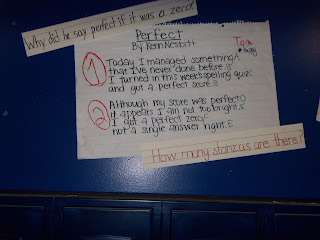 Why did he say perfect if it was a zero?
Perfect
By Kenn Nesbitt
Tone
happy
1 Today I managed something A
that I've never done before. B
I turned in this week's spelling quiz C
and got a perfect score. B
2 Although my score was perfect D
it appears I am not too bright. E
I got a perfect zero F
not a single answer right. E
How many stanzas are there?